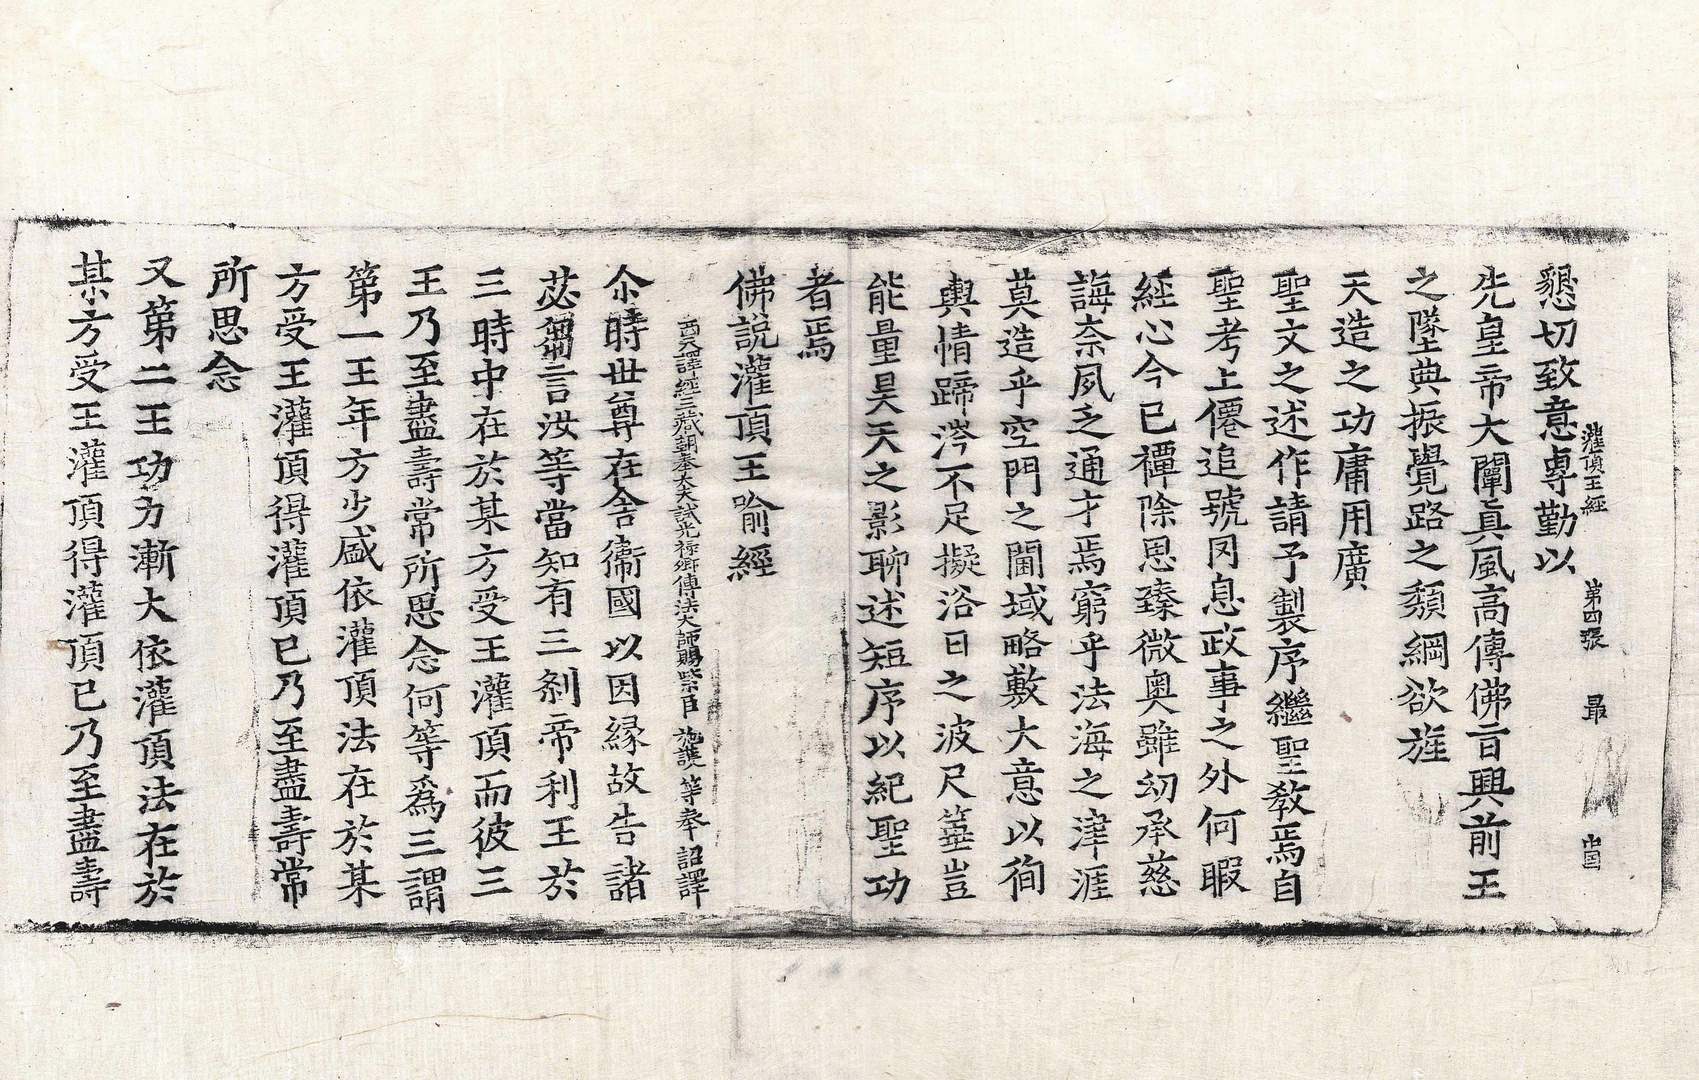 灌頂王經　第四張　最　中囯
懇切致意專勤以
先皇帝大闡真風高傳佛旨興前王
之墜典振覺路之頹綱欲旌
天造之功庸用廣
聖文之述作請予製序繼聖教焉自
聖考上僊追號罔息政事之外何暇
經心今已禫除恩臻微奧雖幼承慈
誨奈夙乏通才焉窮乎法海之津涯
莫造乎空門之閫域略敷大意以徇
輿情蹄涔不足擬浴日之波尺箠豈
能量昊天之影聊述短序以紀聖功
者焉
佛說灌頂王喻經
西天譯經三藏朝奉大夫試光祿卿傳法大師賜紫臣施護等奉詔譯
尒時世尊在舍衞國以因緣故告諸
苾芻言汝等當知有三剎帝利王於
三時中在於某方受王灌頂而彼三
王乃至盡壽常所思念何等爲三謂
第一王年方少盛依灌頂法在於某
方受王灌頂得灌頂已乃至盡壽常
所思念
又第二王功力漸大依灌頂法在於
某方受王灌頂得灌頂已乃至盡壽